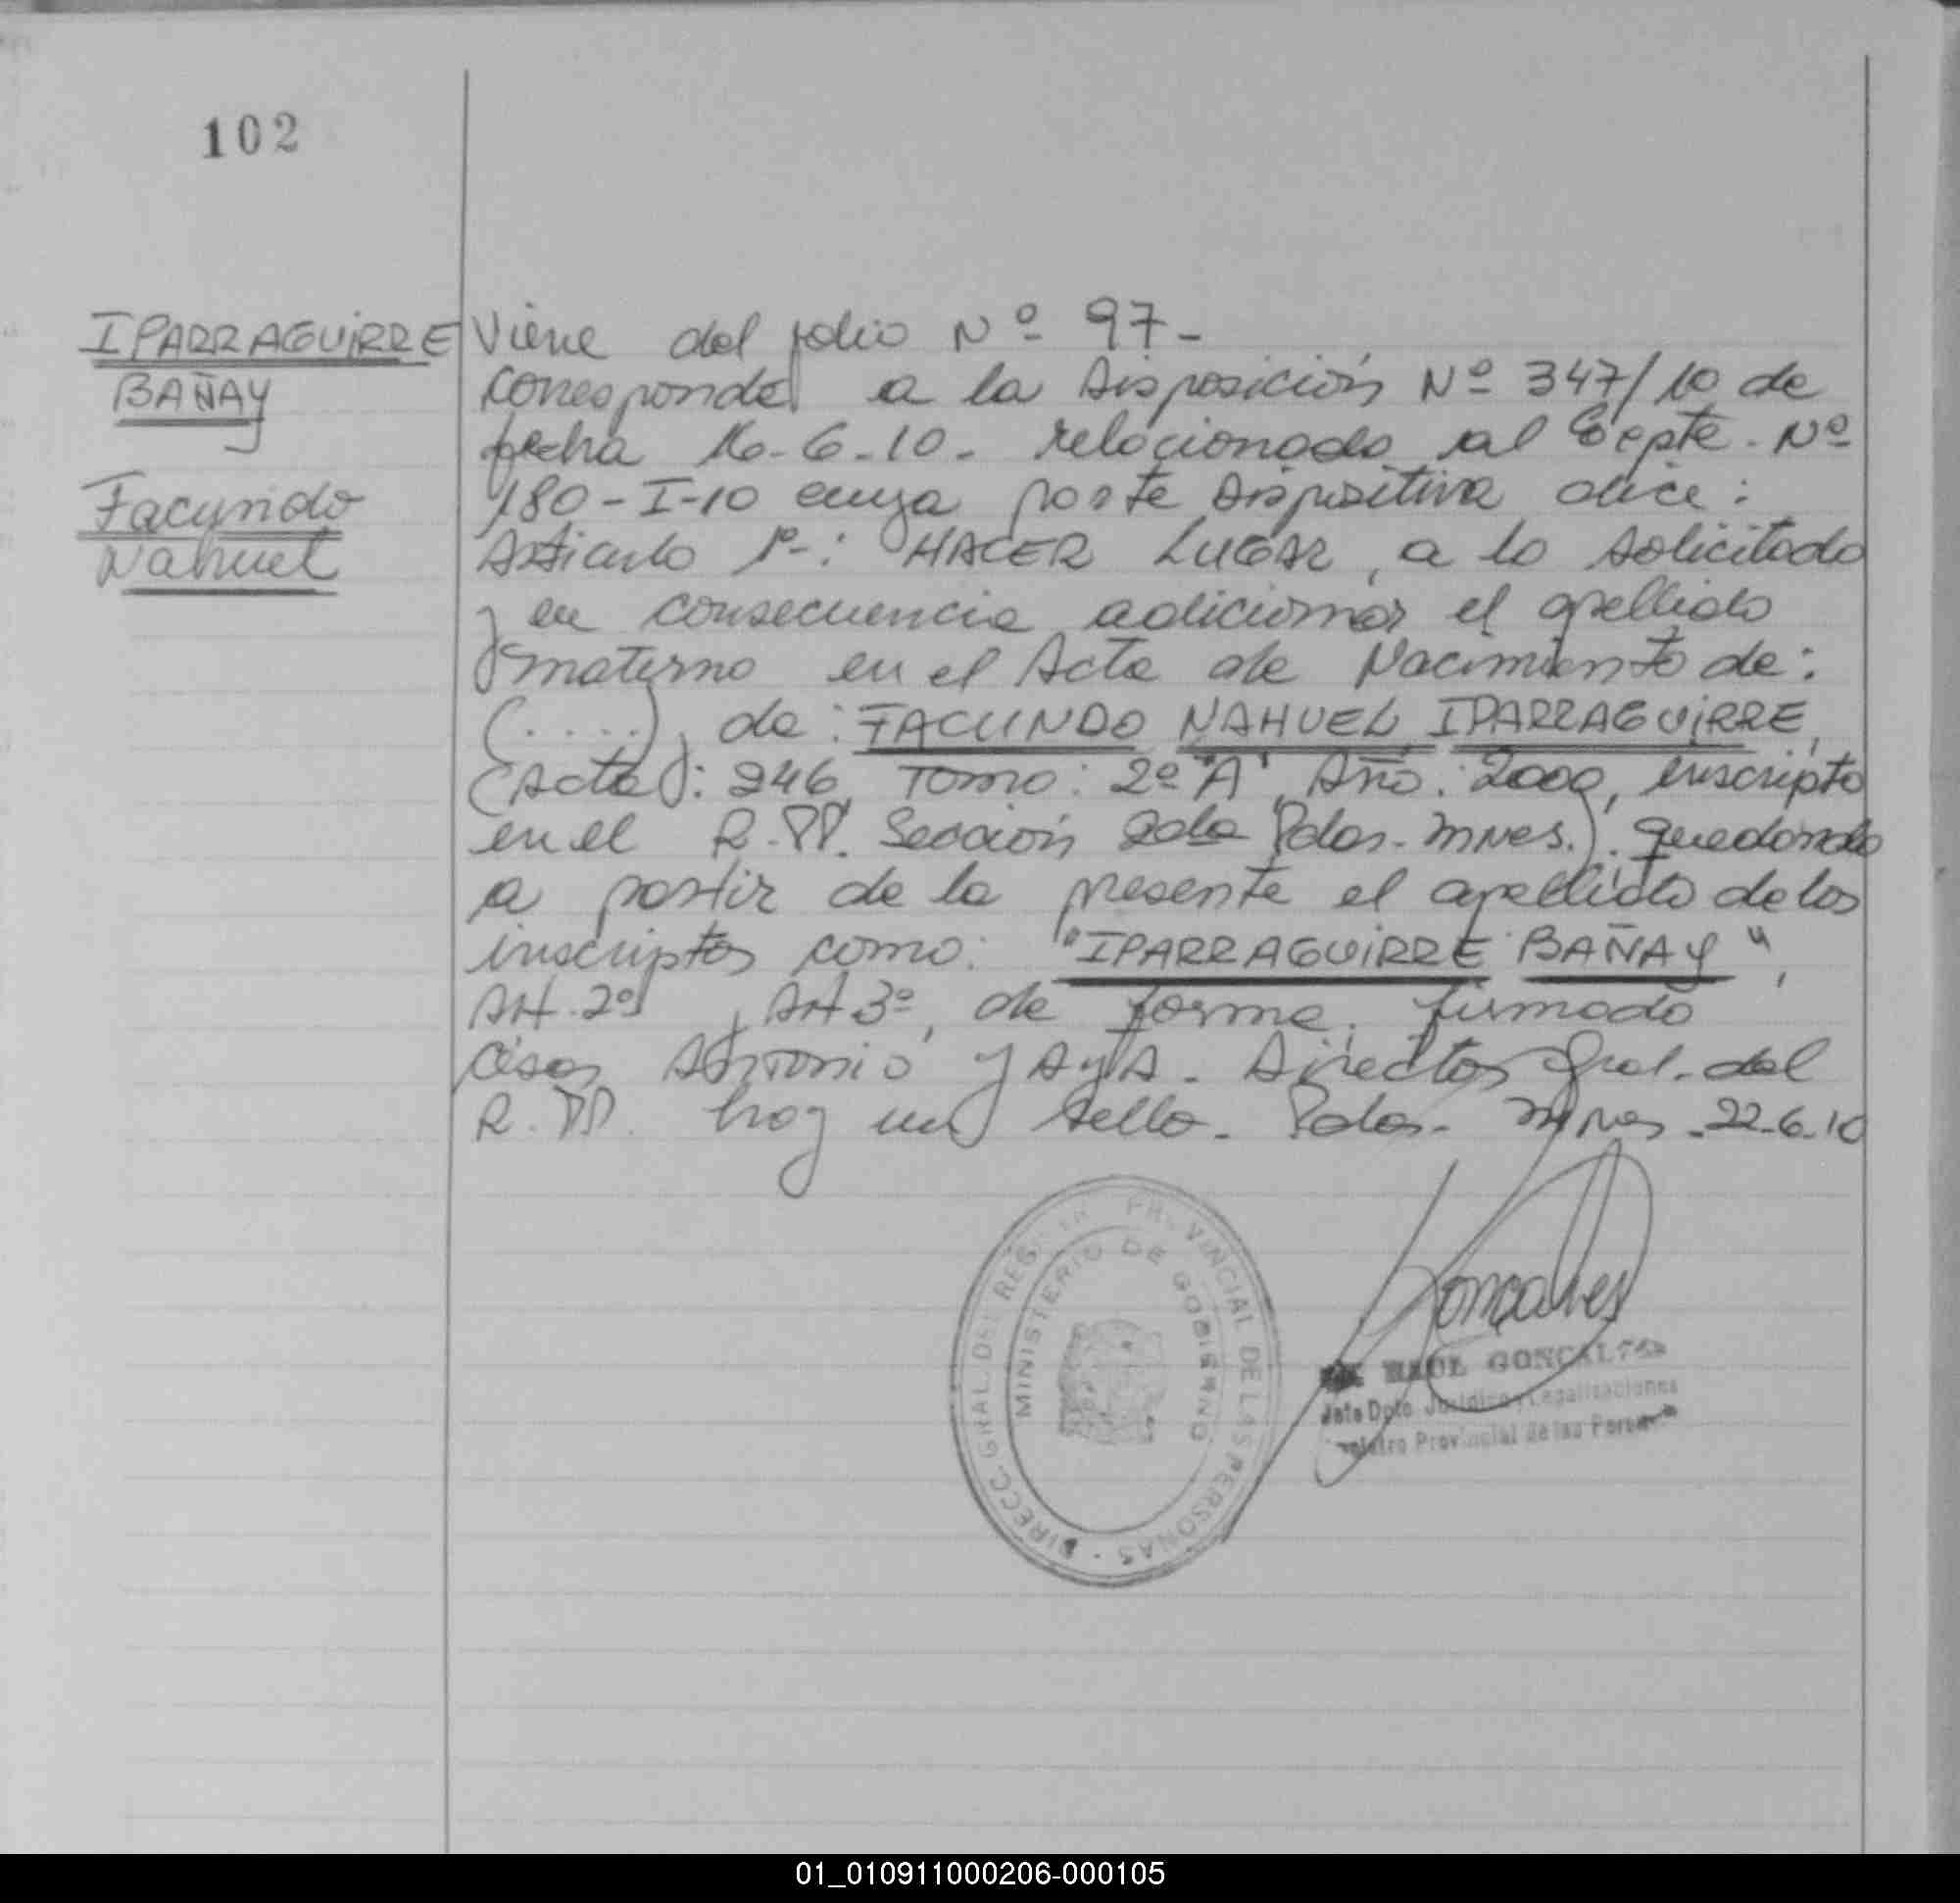 102
IPARRAGUIRRE
BAÑAY
Facundo
Nahuel
Viene del folio Nº 97-
corresponde a la Disposición Nº 347/10 de
fecha 16-6-10- relacionado al Expte. Nº
180-I-10 cuya parte dispositiva dice:
Articulo 1º-: HACER LUGAR, a lo solicitado
y en consecuencia adicionar el apellido
materno en el Acta de Nacimiento de:
(.....), de: FACUNDO NAHUEL IPARRAGUIRRE,
(Acta): 246, Tomo: 2º "A", Año: 2000, inscripto
en el R.PP. Sección 2da Pdas. Mnes.). quedando
a partir de la presente el apellido de los
inscriptos como: "IPARRAGUIRRE BAÑAY",
Art. 2º, Art 3º, de forma, firmado
César Antonio Director Gral. del
R.PP. hay un sello. Pdas. Mnes. 22-6-10
DIRECC. GRAL. DEL REG. PROVINCIAL DE LAS PERSONAS
MINISTERIO DE GOBIERNO
Goncalves
RAUL GONCALVES
Jefe Dpto Juridico y Legalizaciones
Registro Provincial de las Personas
01_010911000206-000105